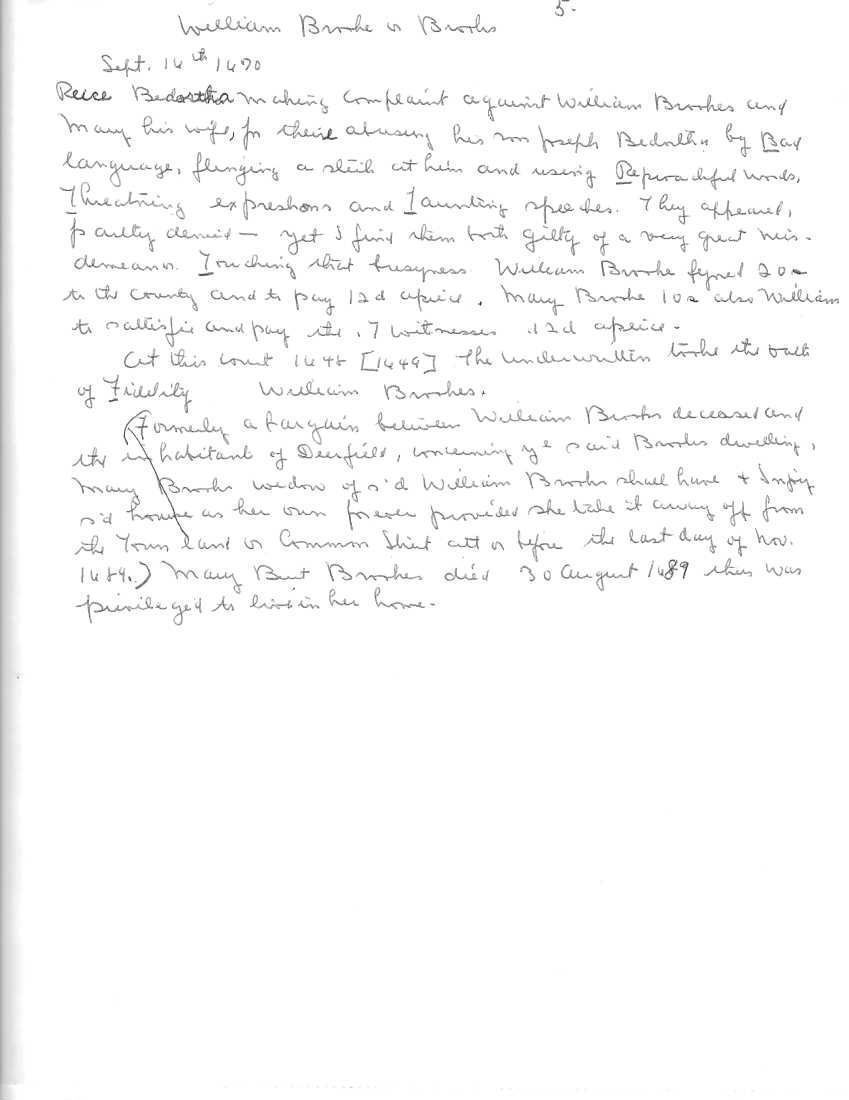 5.
William Brooke or Brooks
Sept. 14th 1670
Reice Bedortha making Complaint against William Brookes and
Mary his wife, for theire abusing his son Joseph Bedortha by Bad
language, flinging a stick at him and using Reproachful words,
Threatning expreshons and Taunting speeches. They appeared,
partly denied — yet I find them both Gilty of a very great mis-
demeanor. Touching that busyness William Brooke fyned 20s
to the County and to pay 12d apeice. Mary Brooke 10s also William
to sattisfie and pay the .7 witnesses 12d apeice.
At this Court 1648 [1649] The underwritten tooke the oath
of Fidelity William Brookes.
(Formerly a bargain between William Brooks deceased and
the inhabitants of Deerfield, concerning ye said Brooks dwelling,
Mary Brooks widow of s'd William Brooks shall have & Injoy
s'd house as her own forever provided she take it away off from
the Town land or Common Street att or before the last day of Nov.
1689.) Mary Burt Brookes died 30 August 1689 thus was
privileged to live in her home.